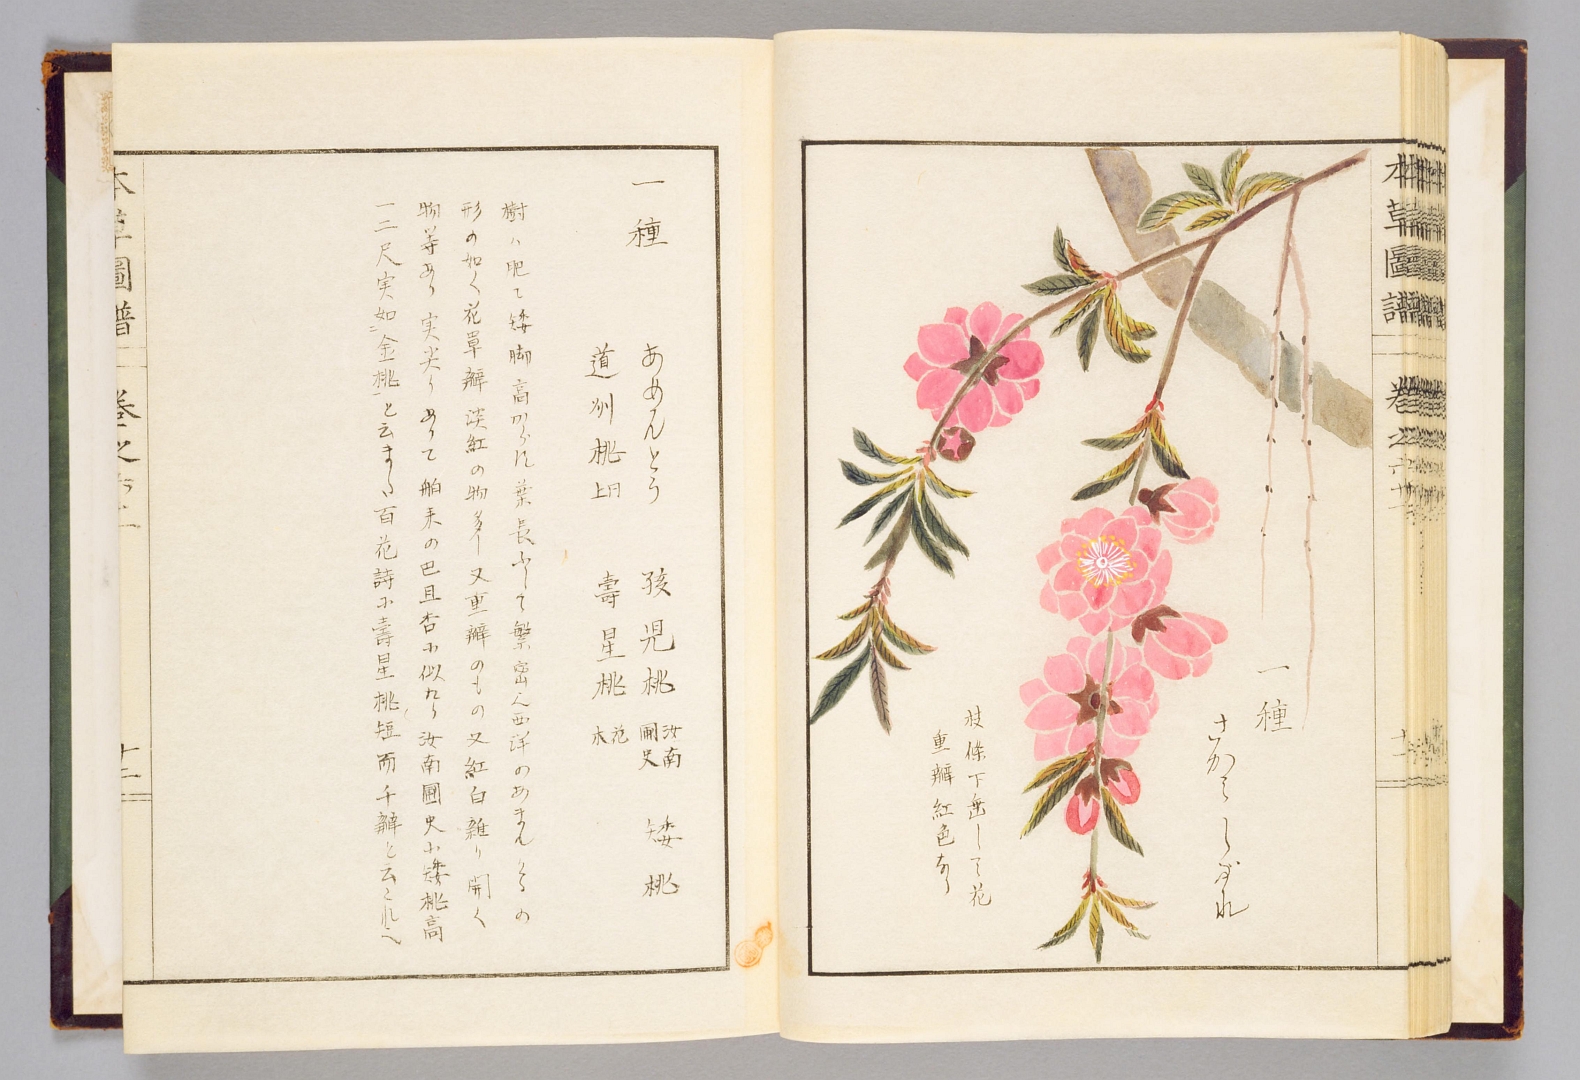 本草圖譜 卷之六十一 十二
一種
さがみしだれ
枝條下垂して花
重瓣紅色なり
一種 あめんとう 孩児桃 汝南圃史 矮桃
道州桃 同上 壽星桃 花木
樹ハ肥て矮脚高からず葉長ふして繁密人西洋のあまんとるの
形の如く花單瓣淡紅の物多し又重瓣のもの又紅白雜り開く
物等あり実尖りありて舶来の巴旦杏に似たり汝南圃史に矮桃高
一二尺実如金桃と云また百花詩に壽星桃短而千瓣と云これへ
本草圖譜 卷之六十一 十二